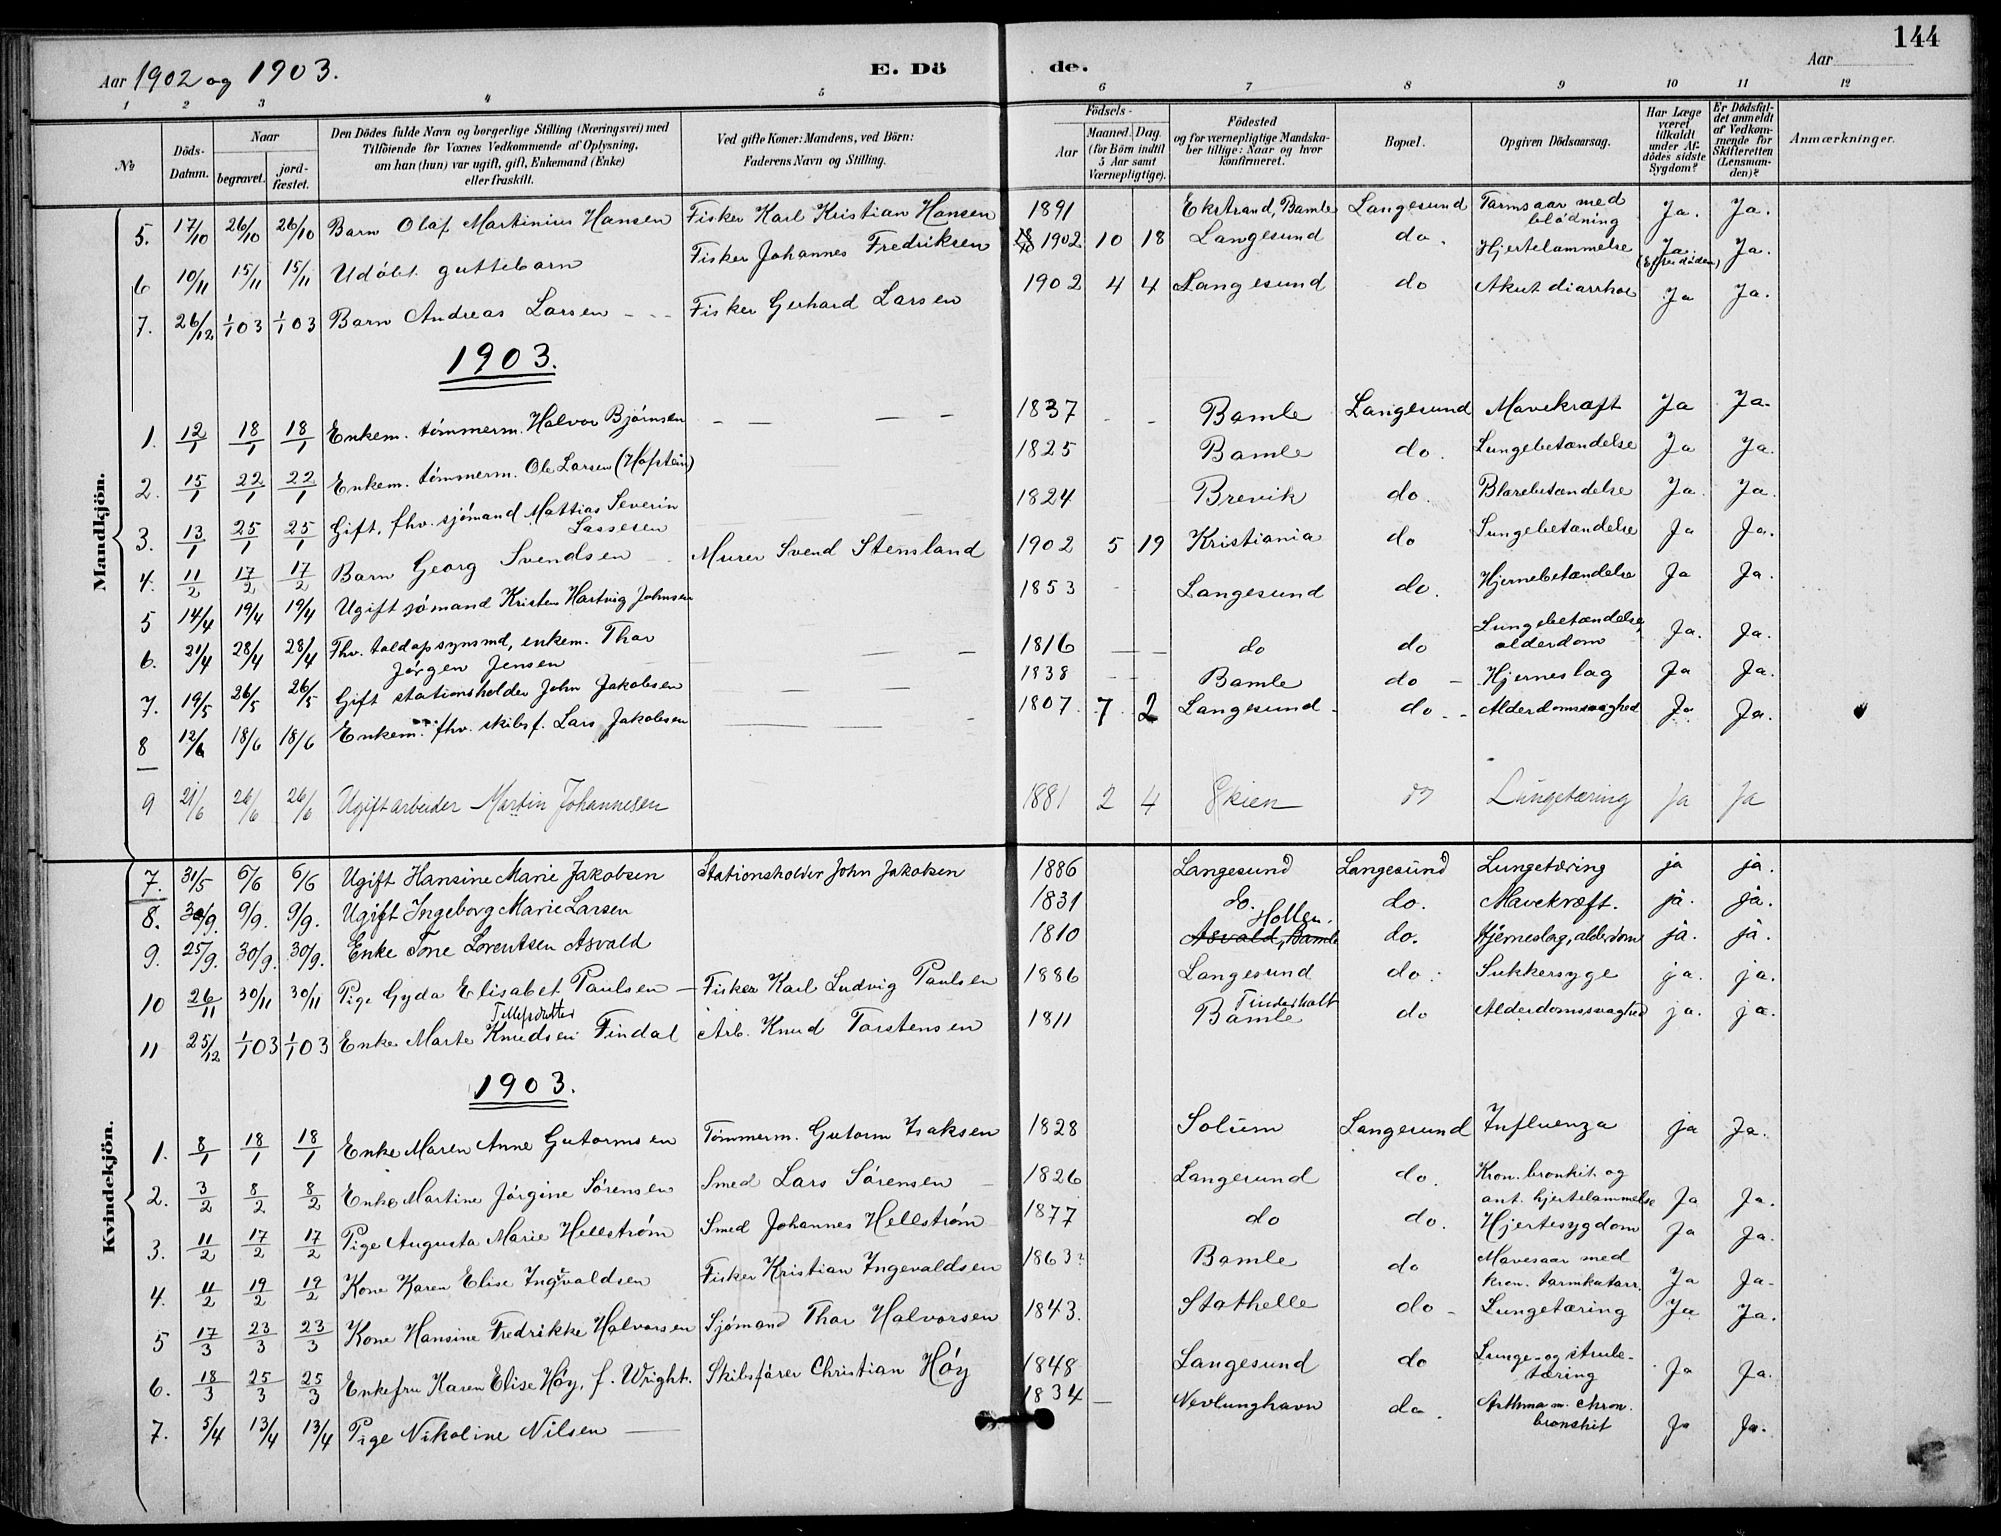 144
Aar 1902 og 1903.
E. Dö de.
Aar
1 2 3 4 5 6 7 8 9 10 11 12
No
Döds-Datum.
Naar
begravet.
jord-fæstet.
Den Dödes fulde Navn og borgerlige Stilling (Næringsvei) med
Tilföiende for Voxnes Vedkommende af Oplysning,
om han (hun) var ugift, gift, Enkemand (Enke)
eller fraskilt.
Ved gifte Koner: Mandens, ved Börn:
Faderens Navn og Stilling.
Födsels-
Aar
Maaned. Dag.
(for Börn indtil
5 Aar samt
Værnepligtige).
Födested
og for værnepligtige Mandska-
ber tillige: Naar og hvor
konfirmeret.
Bopæl.
Opgiven Dödsaarsag.
Har Læge
været
tilkaldt
under Af-
dødes sidste
Sygdom?
Er Dödsfal-
det anmeldt
af Vedkom-
mende for
Skifteretten
(Lensman-
den)?
Anmærkninger.
Mandkjön.
5. 17/10 26/10 26/10 Barn Olaf Martinius Hansen Fisker Karl Kristian Hansen 1891 Ekstrand, Bamle Langesund Tarmsaar med blødning Ja. Ja.
6 10/11 15/11 15/11 Udöbt guttebarn Fisker Johannes Fredriksen 1902 10 18 Langesund do. Hjertelammelse Ja. (Efter døden) Ja.
7. 26/12 1/1 03 1/1 03 Barn Andreas Larsen Fisker Gerhard Larsen 1902 4 4 Langesund do Akut diarrhoe Ja Ja.
1903.
1. 12/1 18/1 18/1 Enkem. tømmerm. Halvor Bjørnsen 1837 Bamle Langesund Mavekræft Ja Ja.
2. 15/1 22/1 22/1 Enkem. tømmerm. Ole Larsen (Hafsten) 1825 Bamle do. Lungebetændelse Ja Ja.
3. 13/1 25/1 25/1 Gift. fhv. sjømand Mattias Severin Lassesen 1824 Brevik do. Blærebetændelse Ja. Ja.
4. 11/2 17/2 17/2 Barn Georg Svendsen Murer Svend Stensland 1902 5 19 Kristiania do Lungebetændelse Ja Ja.
5 14/4 19/4 19/4 Ugift sjömand Kristen Hartvig Johnsen 1853 Langesund do. Hjernebetændelse Ja Ja.
6. 21/4 28/4 28/4 Fhv. toldopsynsmd, enkem. Thor Jörgen Jensen 1816 do do Lungebetændelse, alderdom Ja. Ja.
7. 19/5 26/5 26/5 Gift stationsholder John Jakobsen 1838 Bamle do Hjerneslag Ja Ja.
8 12/6 18/6 18/6 Enkem. fhv. skibsf. Lars Jakobsen 1807. 7 2 Langesund do. Alderdomssvaghed Ja Ja.
9 21/6 26/6 26/6 Ugift arbeider Martin Johannesen 1881 2 4 Skien do Lungetæring ja Ja
Kvindekjön.
7. 31/5 6/6 6/6 Ugift Hansine Marie Jakobsen Stationsholder John Jakobsen 1886 Langesund Langesund Lungetæring ja ja.
8. 9/9. 9/9. Ugift Ingeborg Marie Larsen 1831 do. do. Mavekræft. ja. ja.
9. 25/9. 30/9. 30/9. Enke Tone Lorentsen Asvald 1810 Asvald, Bamle Hollen. do. Hjerneslag, alderdom ja. ja.
10 26/11 30/11 30/11 Pige Gyda Elisabet Paulsen Fisker Karl Ludvig Paulsen 1886 Langesund do. Sukkersyge ja. ja.
11 25/12 1/1 03 1/1 03 Enke Marte Knudsen Findal Arb. Knud Torstensen 1811 Bamle Tinderholt do Alderdomssvaghed ja. ja.
1903.
1. 8/1 18/1 18/1 Enke Maren Anne Gutormsen Tømmerm. Gutorm Isaksen 1828 Solum Langesund Influenza ja Ja.
2. 3/2 8/2 8/2 Enke Martine Jörgine Sörensen Smed Lars Sörensen 1826 Langesund do. Kron. bronkit. og ant. hjertelammelse Ja Ja.
3. 11/2 17/2 17/2 Pige Augusta Marie Hellström Smed Johannes Hellström 1877 do do. Hjertesygdom Ja Ja.
4. 11/2 19/2 19/2 Kone Karen Elise Ingevaldsen Fisker Kristian Ingevaldsen 1863? Bamle do Mavesaar med kron. tarmkatarr. Ja Ja.
5 17/3 23/3 23/3 Kone Hansine Fredrikke Halvorsen Sjömand Thor Halvorsen 1843. Stathelle do Lungetæring Ja Ja.
6. 18/3 25/3 25/3 Enkefru Karen Elise Höy, f. Wright. Skibsfører Christian Höy 1848 Langesund do Lunge- og strube-tæring Ja Ja.
7. 5/4 13/4 13/4 Pige Nikoline Nilsen 1834 Nevlunghavn do. Asthma m. chron. bronchit Ja Ja.